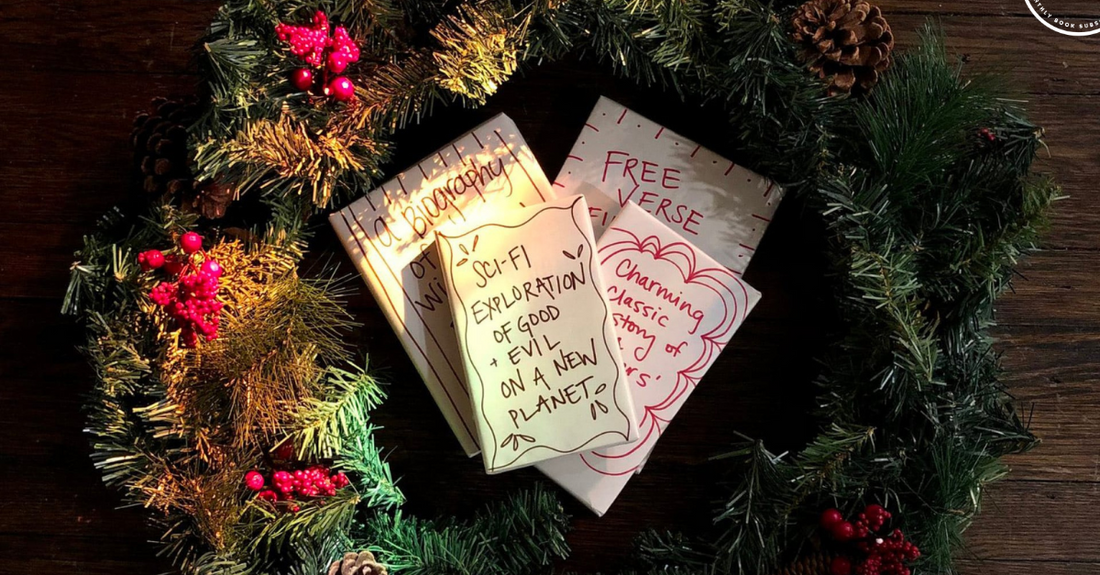 a Biography
of
FREE
VERSE
SCI-FI
EXPLORATION
OF GOOD
+ EVIL
ON A NEW
PLANET
Charming
Classic
story of
BOOK SUBS